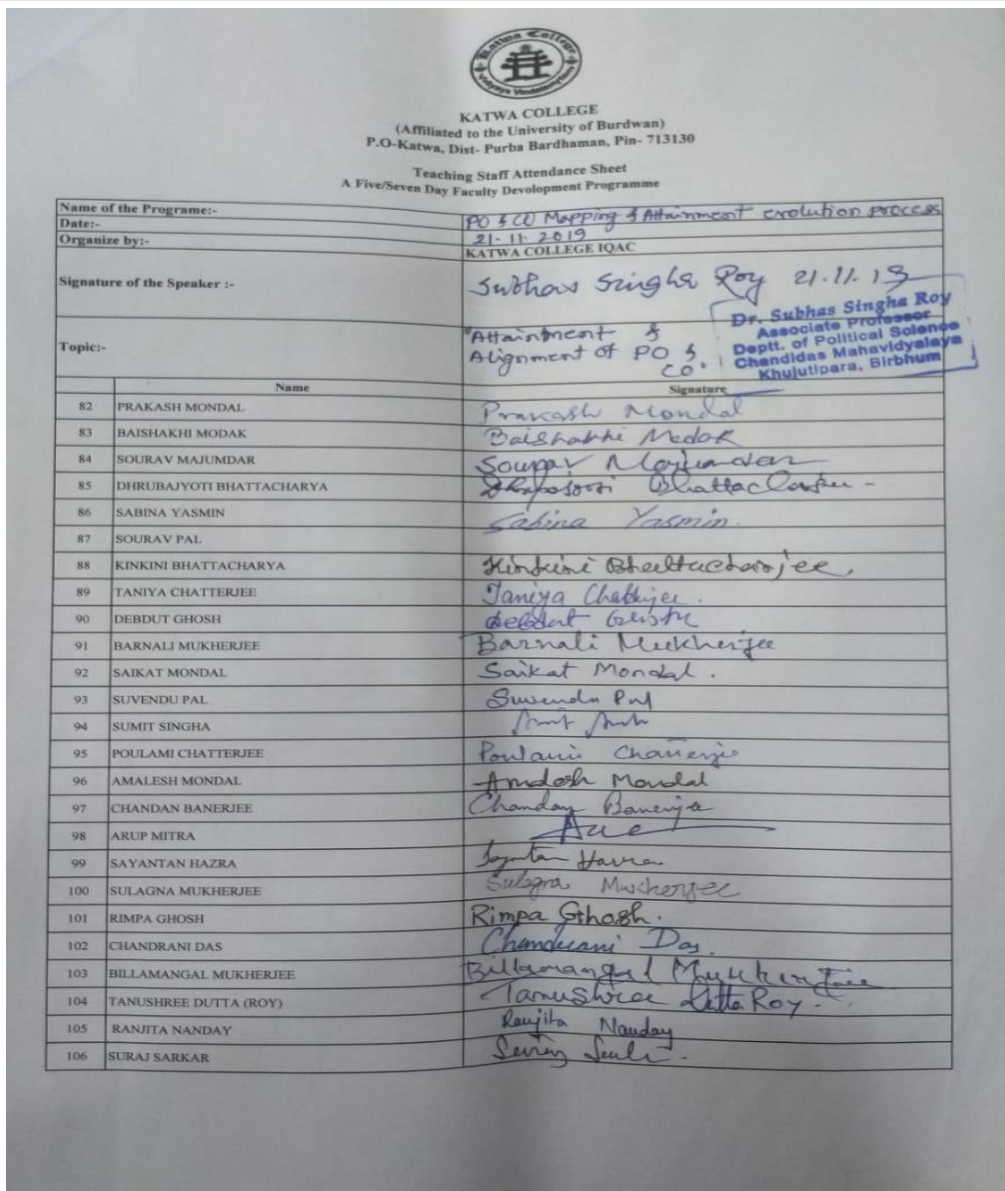 Katwa College
Vidyaya Vindateamritam
KATWA COLLEGE
(Affiliated to the University of Burdwan)
P.O-Katwa, Dist- Purba Bardhaman, Pin- 713130
Teaching Staff Attendance Sheet
A Five/Seven Day Faculty Devolopment Programme
Name of the Programe:- PO & CO Mapping & Attainment evolution process
Date:- 21-11-2019
Organize by:- KATWA COLLEGE IQAC
Signature of the Speaker :- Subhas Singha Roy 21.11.19
Dr. Subhas Singha Roy
Associate Professor
Deptt. of Political Science
Chandidas Mahavidyalaya
Khujutipara, Birbhum
Topic:- "Attainment &
Alignment of PO &
CO.
Name Signature
82 PRAKASH MONDAL Prakash Mondal
83 BAISHAKHI MODAK Baishakhi Modak
84 SOURAV MAJUMDAR Sourav Majumdar
85 DHRUBAJYOTI BHATTACHARYA
86 SABINA YASMIN Sabina Yasmin.
87 SOURAV PAL
88 KINKINI BHATTACHARYA Kinkini Bhattacharjee.
89 TANIYA CHATTERJEE Taniya Chatterjee.
90 DEBDUT GHOSH Debdut Ghosh
91 BARNALI MUKHERJEE Barnali Mukherjee
92 SAIKAT MONDAL Saikat Mondal.
93 SUVENDU PAL Suvendu Pal
94 SUMIT SINGHA
95 POULAMI CHATTERJEE Poulami Chatterjee
96 AMALESH MONDAL Amalesh Mondal
97 CHANDAN BANERJEE Chandan Banerjee
98 ARUP MITRA
99 SAYANTAN HAZRA Sayantan Hazra
100 SULAGNA MUKHERJEE Sulagna Mukherjee
101 RIMPA GHOSH Rimpa Ghosh.
102 CHANDRANI DAS Chandrani Das.
103 BILLAMANGAL MUKHERJEE Billamangal Mukherjee
104 TANUSHREE DUTTA (ROY) Tanushree Dutta Roy.
105 RANJITA NANDAY Ranjita Nanday
106 SURAJ SARKAR